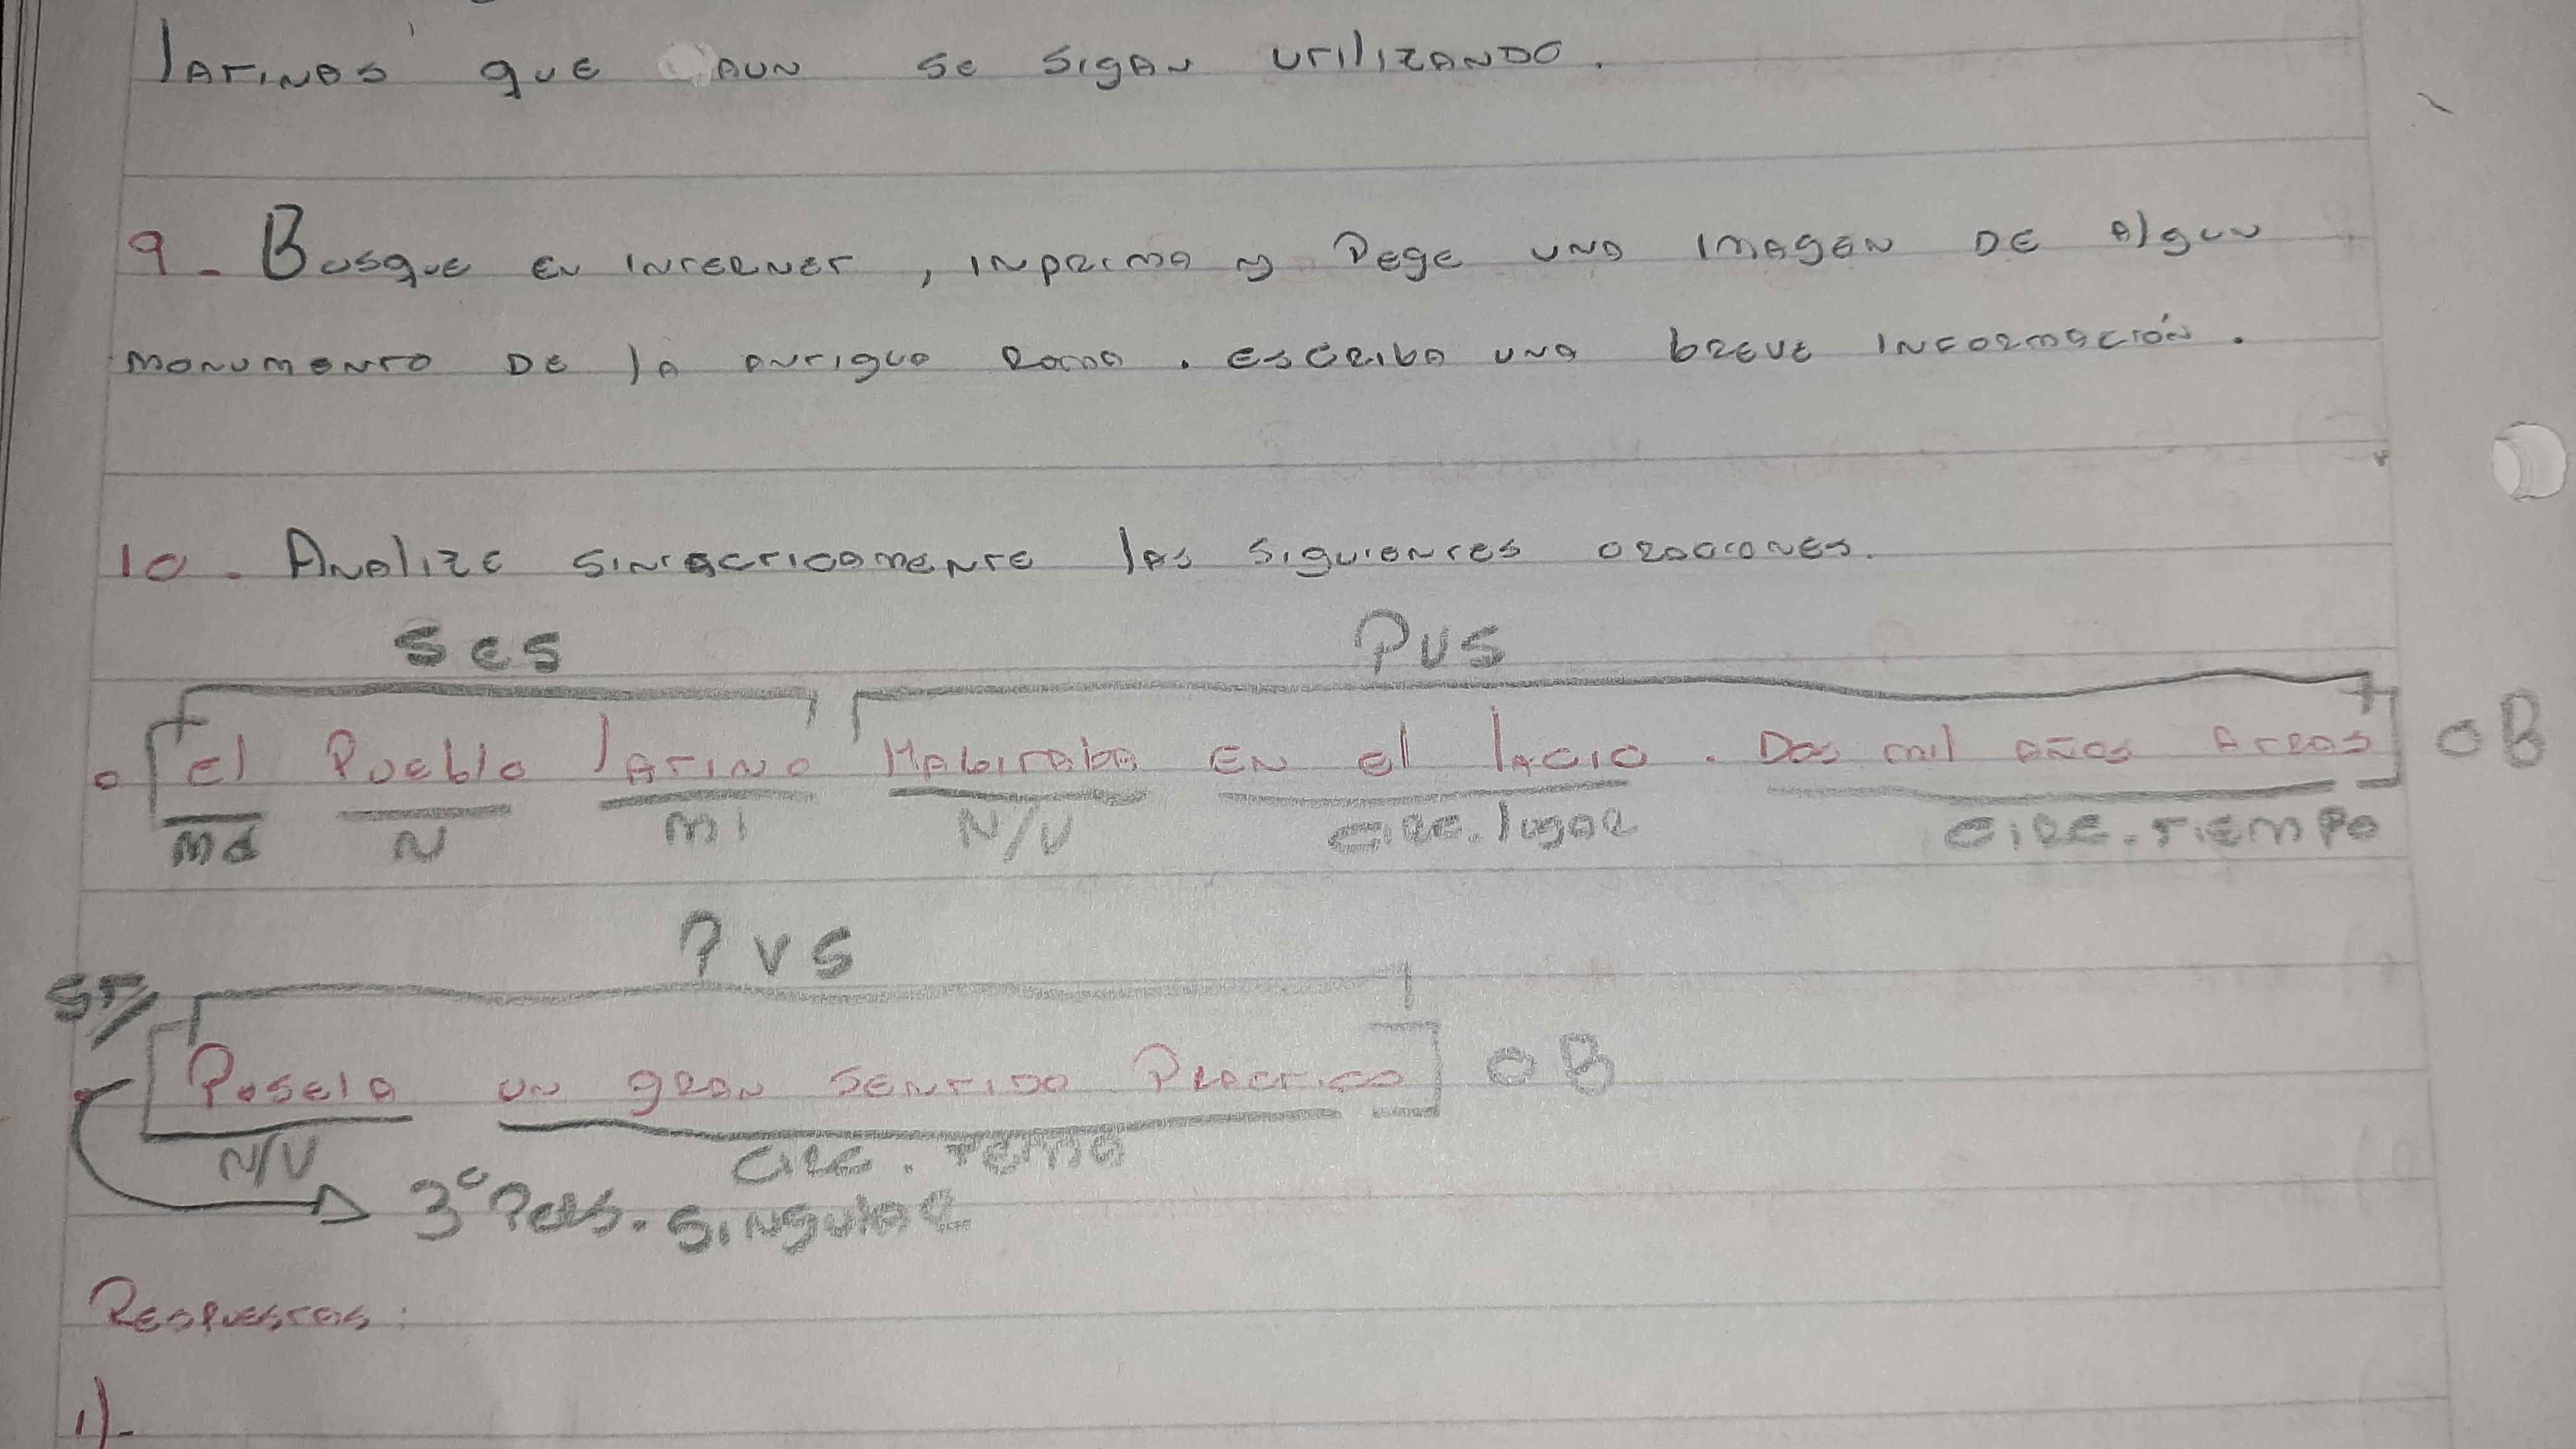 latinas que aun se sigan utilizando.
9- Busque en internet, inprima y Pege una imagen de algun
monumento de la antigua Roma. escriba una breve información.
10. Analize sintacticamente las siguientes oraciones.
SES PVS
el Pueblo latino Habitaba en el lacio. Dos mil años atras OB
md N mi N/V circ. lugar circ. tiempo
PVS
ST//
Poseia un gran sentido Practico OB
N/V circ. tema
3° Pers. singular
Respuestas:
1)-